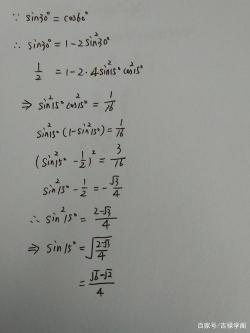 ∵ sin30° = cos60°
∴ sin30° = 1-2sin²30°
1/2 = 1-2·4sin²15°cos²15°
⇒ sin²15°cos²15° = 1/16
sin²15°(1-sin²15°) = 1/16
(sin²15° - 1/2)² = 3/16
sin²15° - 1/2 = -√3/4
∴ sin²15° = 2-√3/4
⇒ sin15° = √(2-√3/4)
= √6-√2/4
百家号/古禄学阁